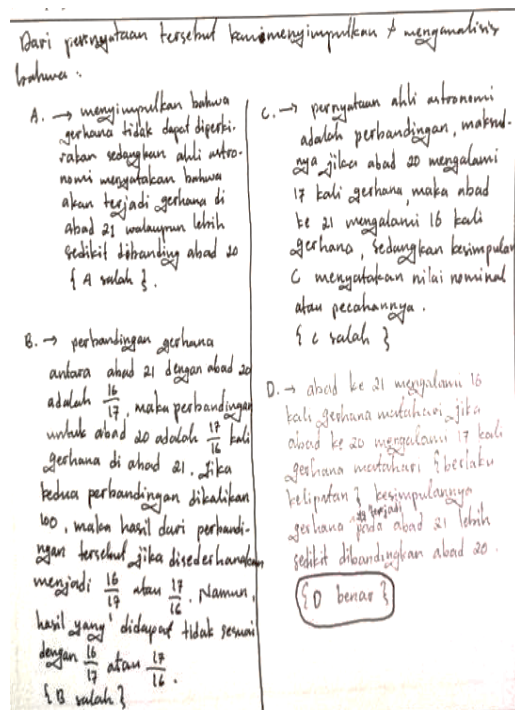 Dari pernyataan tersebut kami menyimpulkan & menganalisis
bahwa :
A. → menyimpulkan bahwa
gerhana tidak dapat diperki-
rakan sedangkan ahli astro-
nomi menyatakan bahwa
akan terjadi gerhana di
Abad 21 walaupun lebih
sedikit dibanding abad 20
{ A salah }.
B. → perbandingan gerhana
antara abad 21 dengan abad 20
adalah 16/17, maka perbandingan
untuk abad 20 adalah 17/16 kali
gerhana di abad 21. Jika
kedua perbandingan dikalikan
100, maka hasil dari perbandi-
ngan tersebut jika disederhanakan
menjadi 16/17 atau 17/16. Namun,
hasil yang didapat tidak sesuai
dengan 16/17 atau 17/16.
{ B salah }
C. → pernyataan ahli astronomi
adalah perbandingan, maksud-
nya jika abad 20 mengalami
17 kali gerhana, maka abad
ke 21 mengalami 16 kali
gerhana, sedangkan kesimpulan
C mengatakan nilai nominal
atau pecahannya.
{ C salah }
D. → abad ke 21 mengalami 16
kali gerhana matahari jika
abad ke 20 mengalami 17 kali
gerhana matahari { berlaku
kelipatan } kesimpulannya
gerhana terjadi pada abad 21 lebih
sedikit dibandingkan abad 20.
{ D benar }